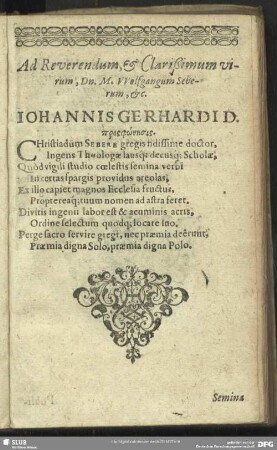 Ad Reverendum, & Clarißimum vi-
rum, Dn. M. VVolfgangum Sebe-
rum, &c.
IOHANNIS GERHARDI D.
προσφώνησις.
CHristiadûm SEBERE gregis fidissime doctor,
Ingens Theologæ lausq; decusq; Scholæ,
Quòd vigili studio cœlestis semina verbi
In certas spargis providus areolas,
Ex illo capiet magnos Ecclesia fructus,
Proptereaq; tuum nomen ad astra feret.
Divitis ingenii labor est & acuminis acris,
Ordine selectum quodq; locare suo.
Perge sacro servire gregi, nec præmia deêrunt,
Præmia digna Solo, præmia digna Polo.
Semina
SLUB